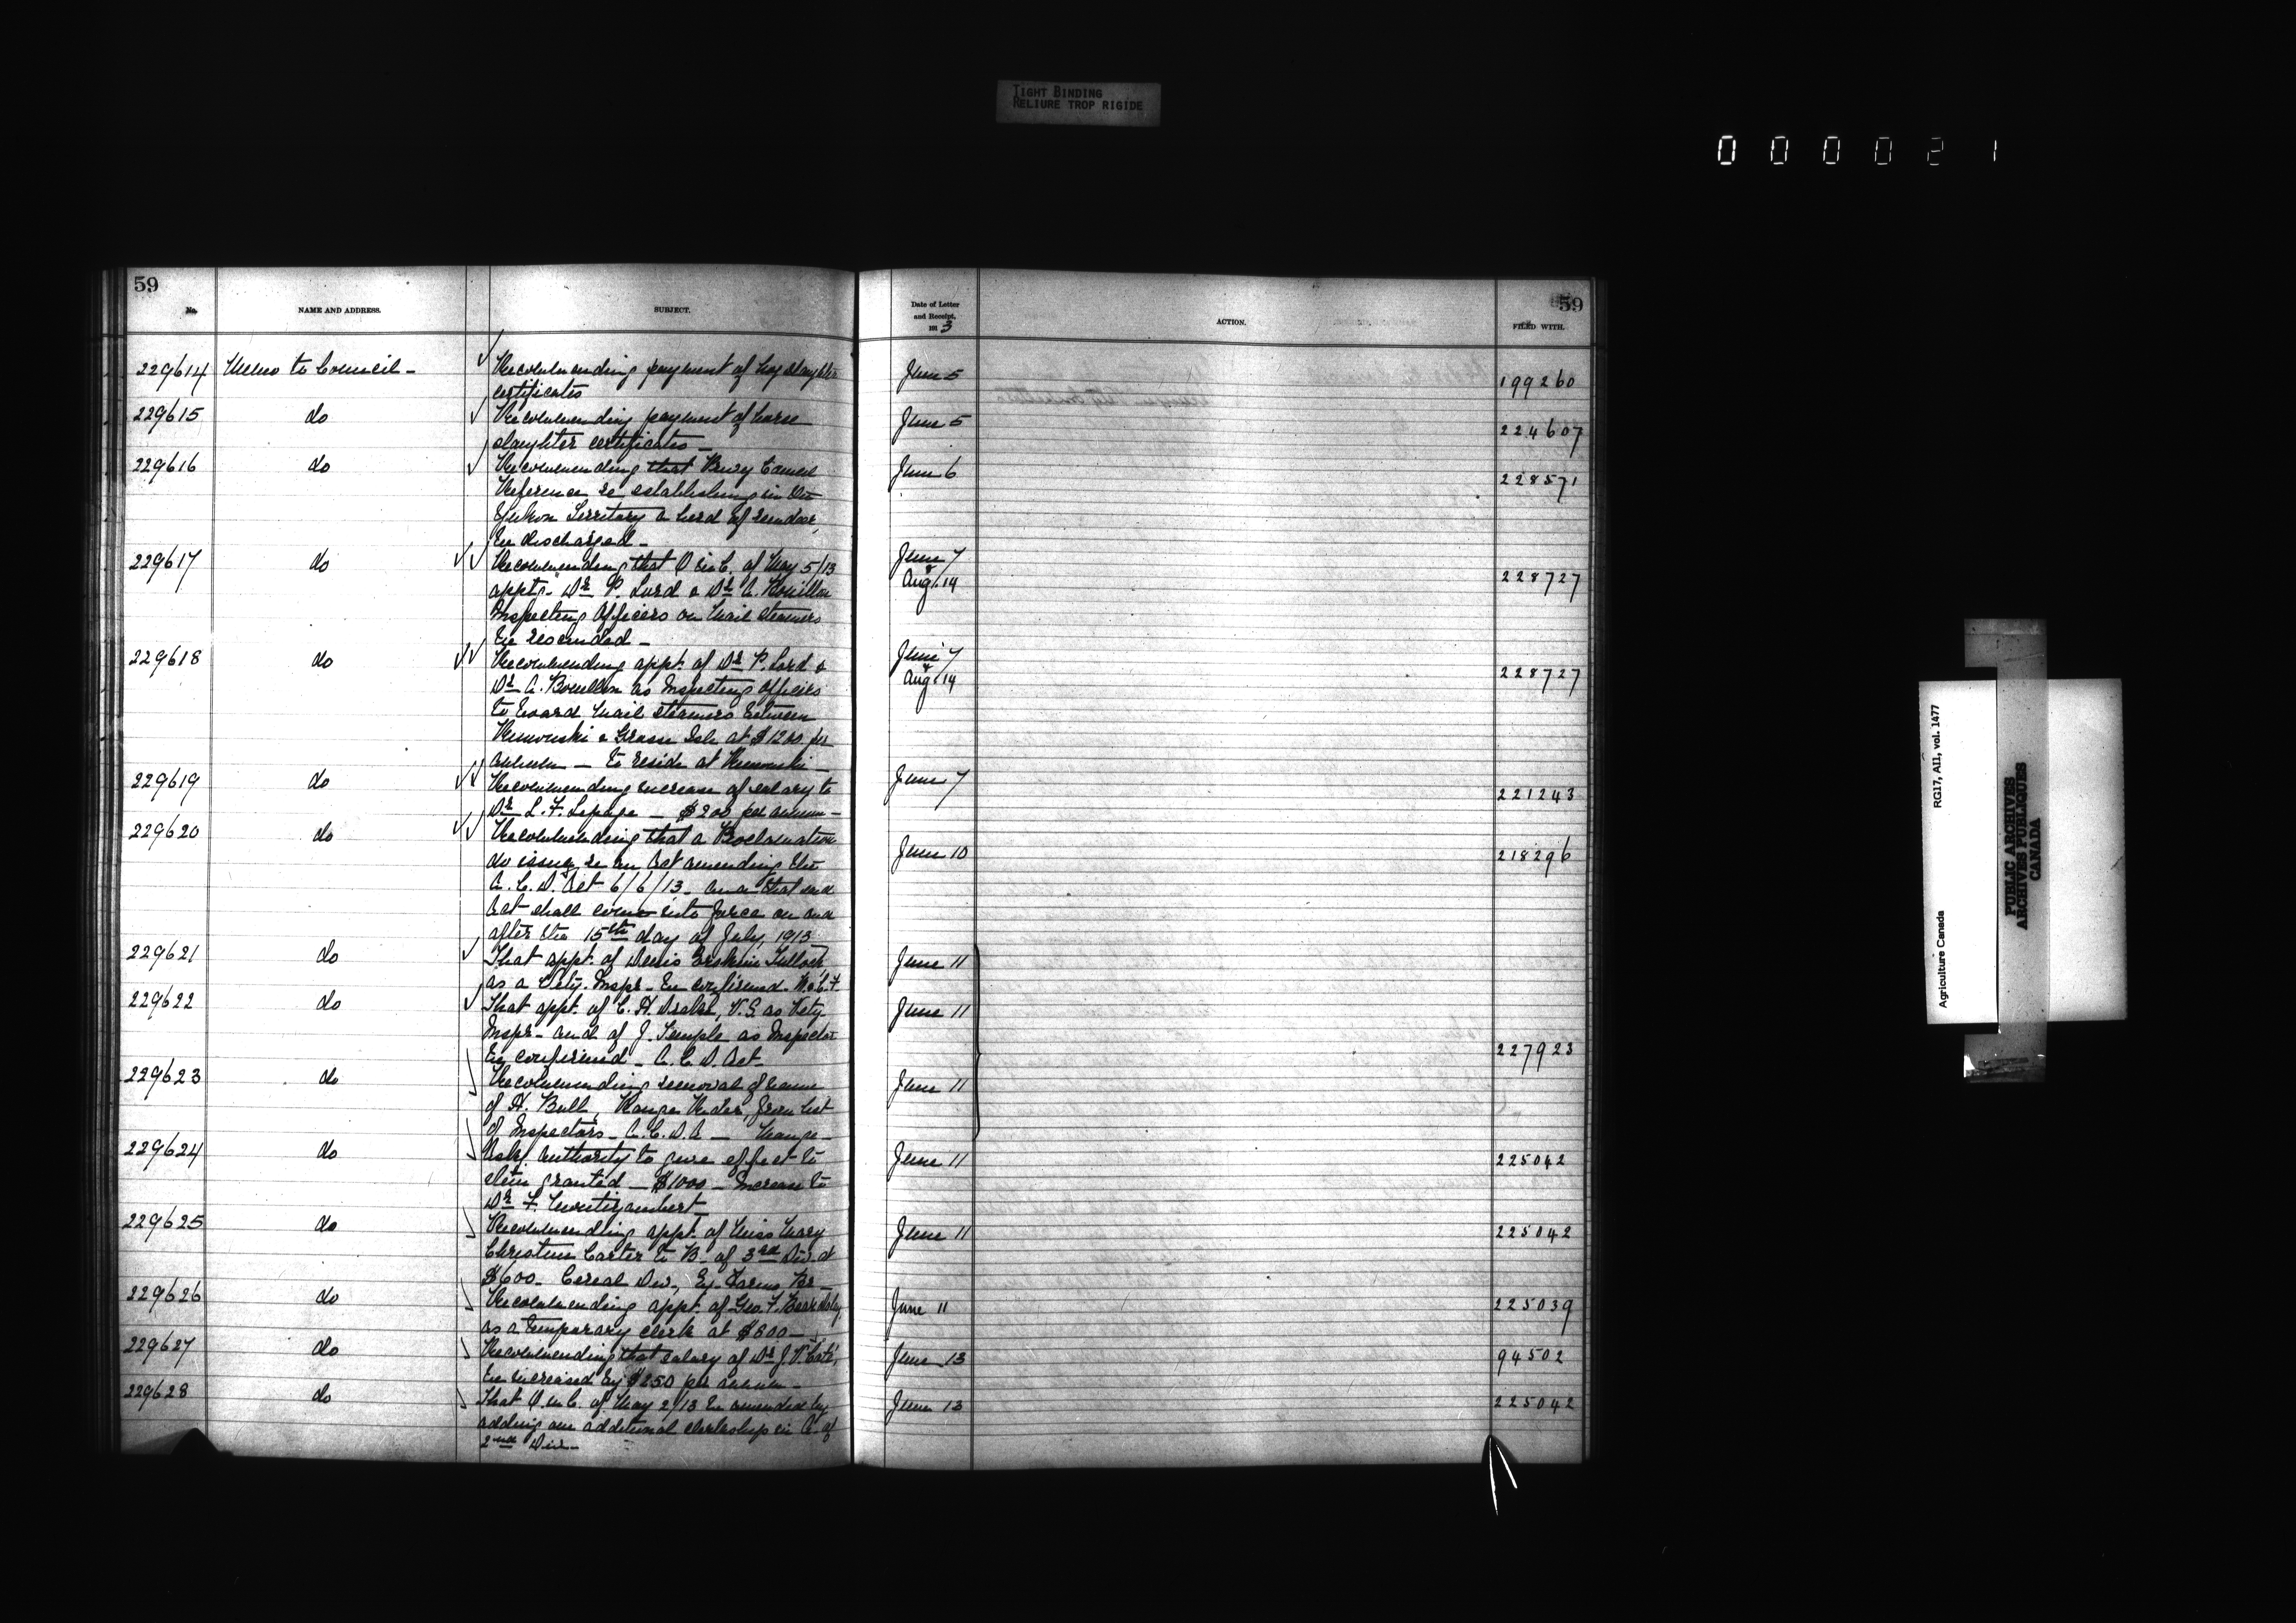 TIGHT BINDING
RELIURE TROP RIGIDE
000021
59
No.
NAME AND ADDRESS.
SUBJECT.
Date of Letter
and Receipt,
1913
ACTION.
59
FILED WITH.
229614 Memo to Council - Recommending payment of hog slaughter June 5 199260
certificates
229615 do Recommending payment of horse June 5 224607
slaughter certificates -
229616 do Recommending that Privy Council June 6 228571
Reference re establishing in the
Yukon Territory a herd of reindeer,
be discharged -
229617 do Recommending that O in C. of May 5/13 June 7 & Aug. 14 228727
appt'g Dr P. Lard & Dr A. Bouillon
Inspecting Officers on Mail Steamers
be rescinded -
229618 do Recommending appt. of Dr P. Lard & June 7 & Aug. 14 228727
Dr A. Bouillon as Inspecting Officers
to board Mail Steamers between
Rimouski & Grosse Isle at $1200 per
annum - to reside at Rimouski -
229619 do Recommending increase of salary to June 7 221243
Dr L. F. Lepage - $200 per annum -
229620 do Recommending that a Proclamation June 10 218296
do issue, re an Act amending the
A. C. D. Act 6/6/13 - and that said
Act shall come into force on and
after the 15th day of July, 1913
229621 do That appt. of Denis Erskine Tulloch June 11
as a Vety. Inspr - be confirmed. M. & C. F.
229622 do That appt. of C. H. Drake, V.S. as Vety. June 11
Inspr - and of J. Temple as Inspector
be confirmed - A. C. D. Act - 227923
229623 do Recommending removal of name June 11
of H. Bull, Range Rider, from list
of Inspectors - A. C. D. A - Mange -
229624 do Asks authority to give effect to June 11 225042
item granted - $1000 - Increase to
Dr F. Montizambert
229625 do Recommending appt. of Miss Mary June 11 225042
Christine Carter to B - of 3rd Div. at
$600 - Cereal Div., Ex. Farms Br -
229626 do Recommending appt. of Geo. F. June 11 225039
as a temporary clerk at $600 -
229627 do Recommending that salary of Dr J. V. June 13 94502
be increased by $250 per annum -
229628 do That O. in C. of May 2/13 be amended by June 13 225042
adding one additional clerkship in A. of
2nd Div -
Agriculture Canada RG17, AII, vol. 1477
PUBLIC ARCHIVES
ARCHIVES PUBLIQUES
CANADA